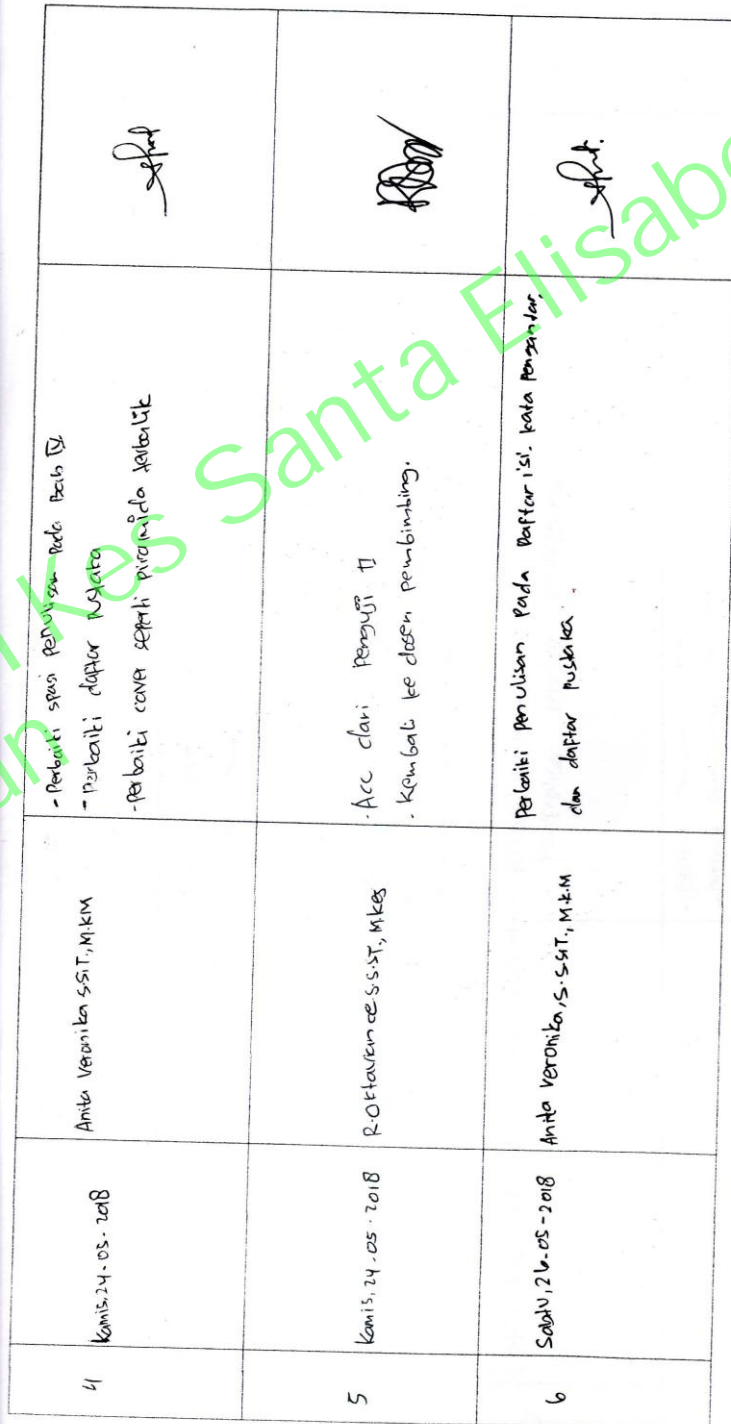 4
Kamis, 24-05-2018
Anita Veronika S.SiT., M.KM
- Perbaiki spasi penulisan pada Bab IV
- Perbaiki daftar Pustaka
- Perbaiki cover seperti piramida terbalik
5
Kamis, 24-05-2018
R. Oktaviance S. S.ST., M.Kes
- Acc dari Penguji II
- Kembali ke dosen pembimbing.
6
Sabtu, 26-05-2018
Anita Veronika, S. SSiT., M.K.M
Perbaiki Penulisan Pada Daftar isi. kata Pengantar,
dan daftar pustaka.
Kes Santa Elisabe
an